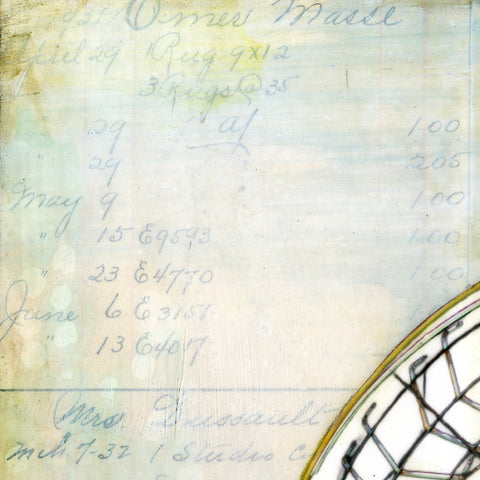 1931 Omer Masse
April 29 1 Rug 9x12
3 Rugs @ 35
29 " af 1 00
" 29 " 2 05
May 9 " 1 00
" 15 E9593 1 00
" 23 E4770 1 00
June 6 E3151
" 13 E4017
Mrs. Dussault
7-32 1 Studio